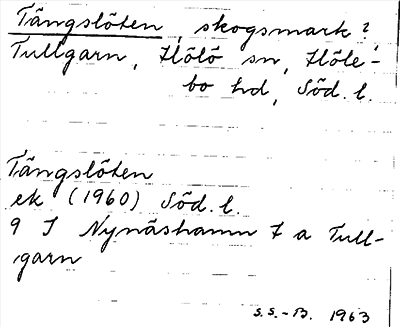 Tängslöten, skogsmark?,
Tullgarn, Hölö sn, Höle-
bo hd, Söd. l.
Tängslöten
ek (1960) Söd. l.
9 I Nynäshamn f a Tull-
garn
S.S.-B. 1963